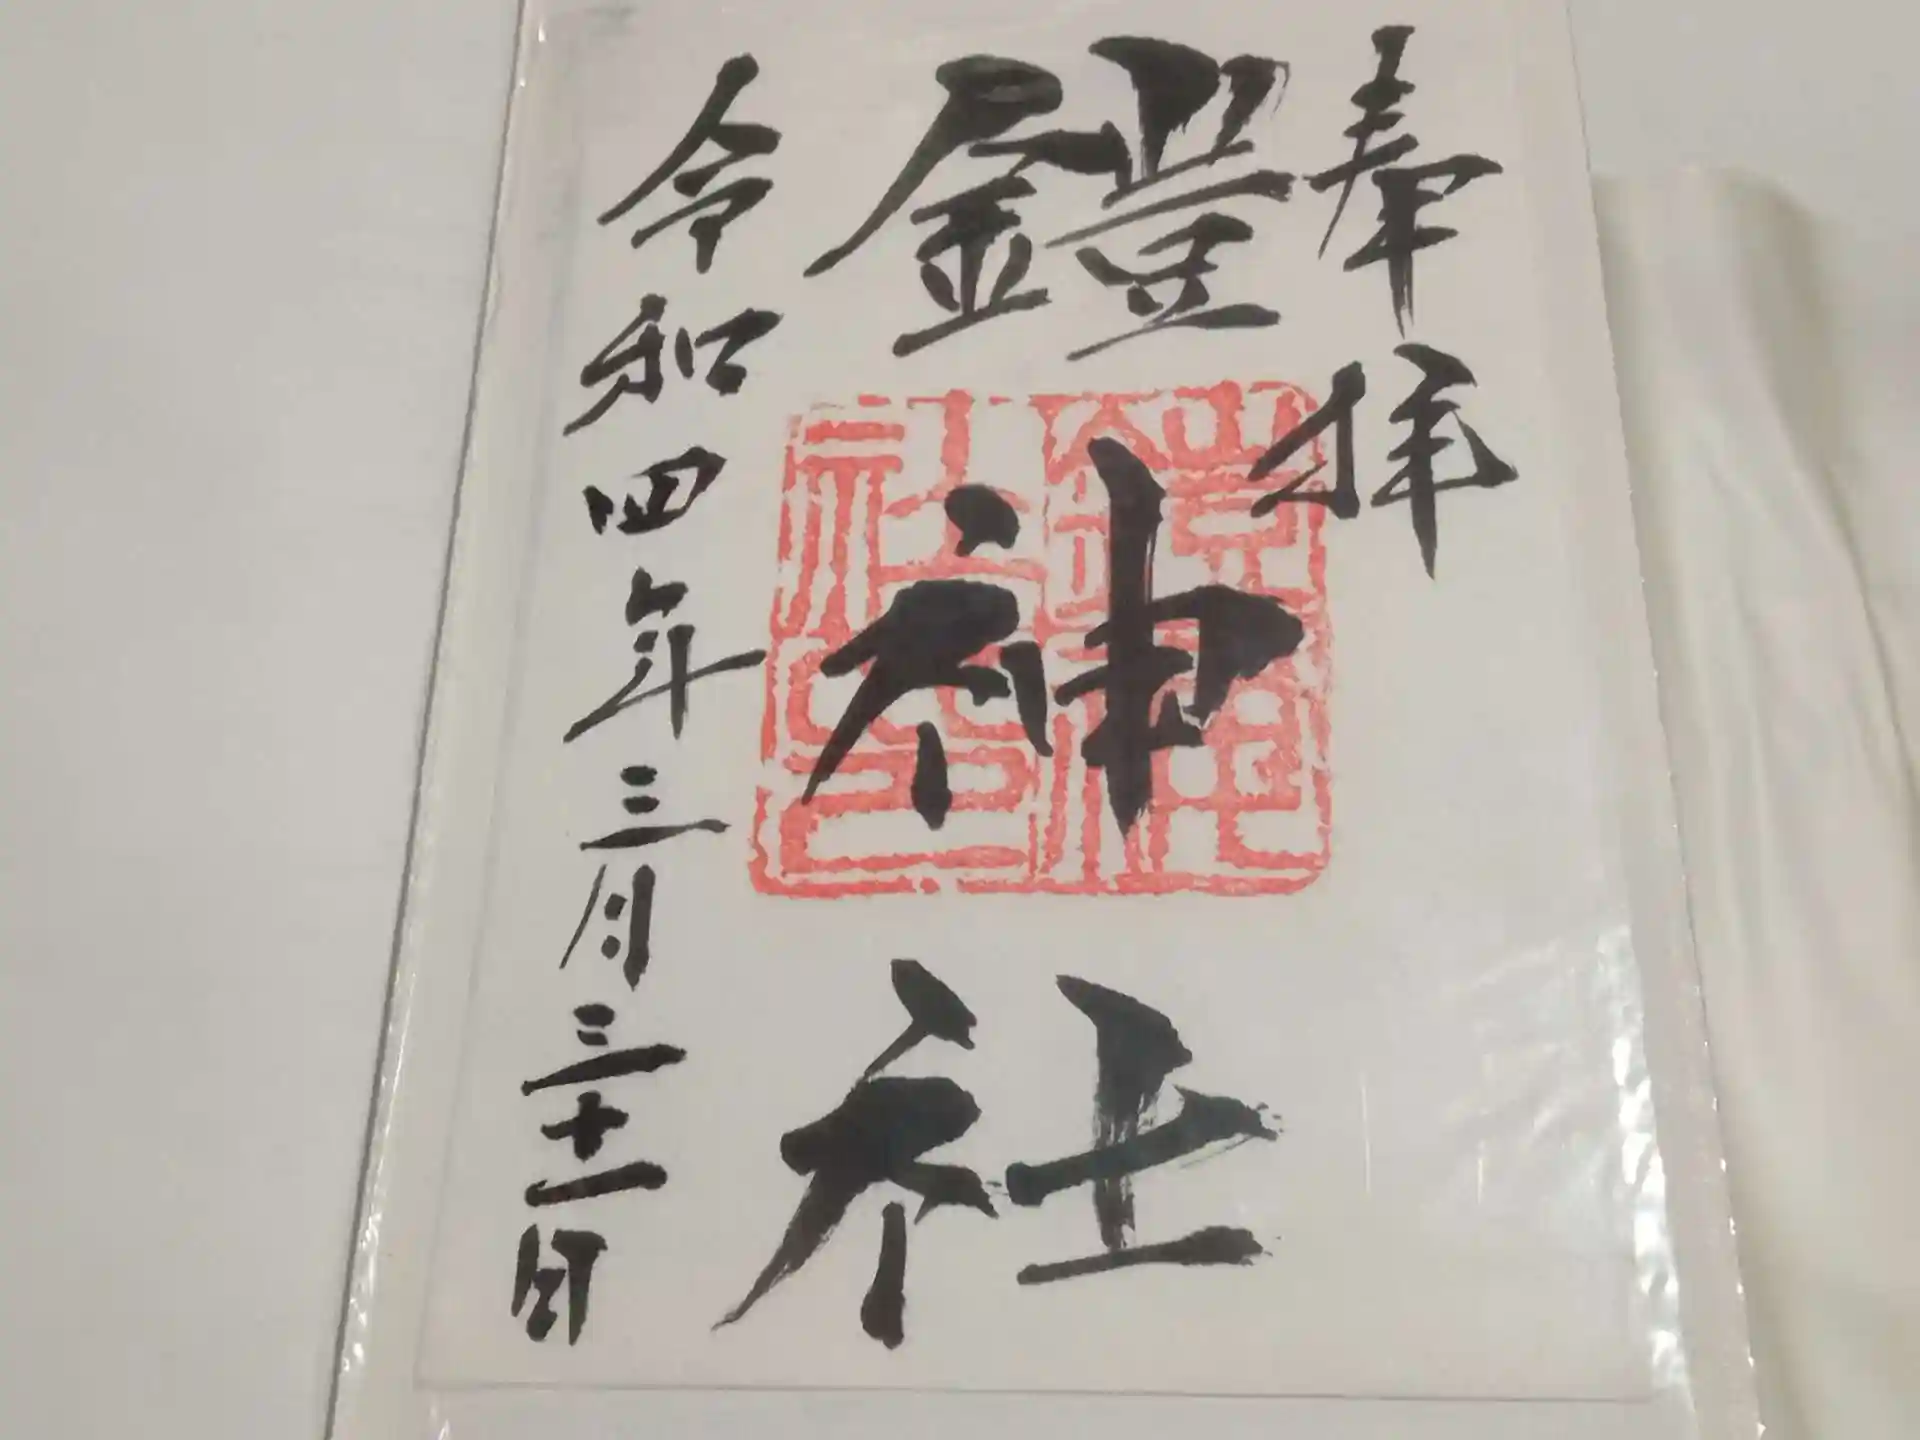 奉拝
鐙神社
令和四年三月三十一日
鐙神社印